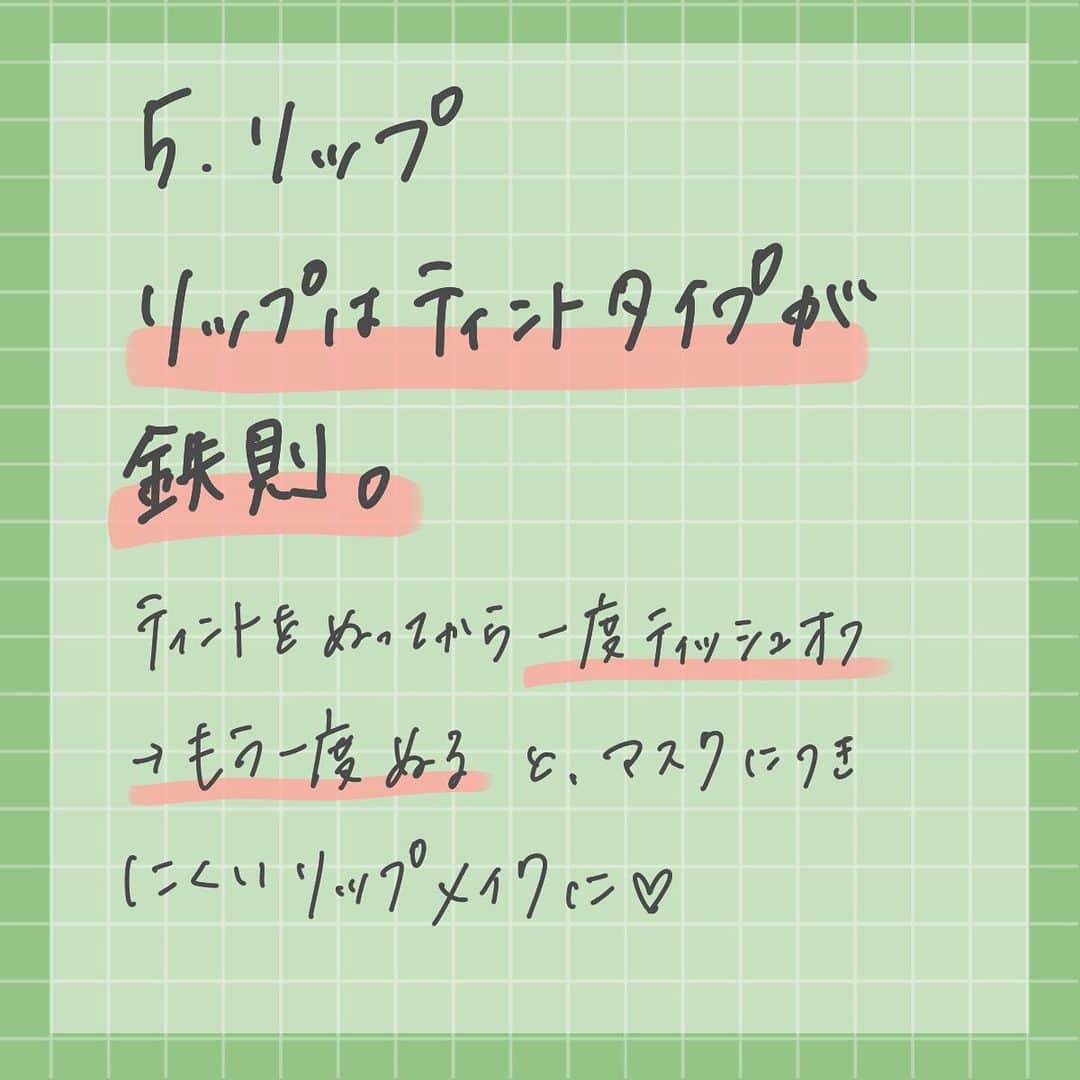 5. リップ
リップはティントタイプが
鉄則。
ティントをぬってから一度ティッシュオフ
→もう一度ぬる と、マスクにつき
にくいリップメイクに♡